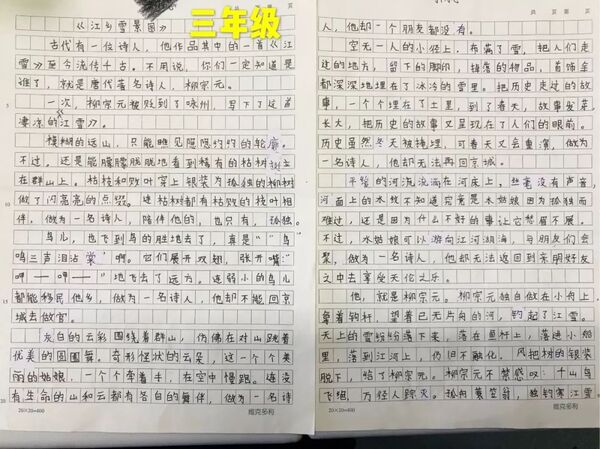 三年级
《江乡雪景图》
古代有一位诗人，他作品其中的一首《江
雪》至今流传千古。不用说，你们一定知道是
谁了，就是唐代著名诗人，柳宗元。
一次，柳宗元被贬到了咏州，写下了这首
凄凉的《江雪》。
模糊的远山，只能瞧见隐隐约约的轮廓。
不过，还是能朦朦胧胧地看到稀有的枯树
在群山上。枯枝和败叶穿上银装为孤独的柳树
做了闪亮亮的点缀。连枯树都有枯败的枝叶相
伴，做为一名诗人，陪伴他的，也只有，孤独。
鸟儿，也飞到鸟的胜地去了，真是“鸟
鸣三声泪沾裳”啊。它们展开双翅，张开嘴
呷——呷——”地飞去了远方。连弱小的鸟儿
都能移民他乡，做为一名诗人，他却不能回京
城去做官。
灰白的云彩围绕着群山，仿佛在对山跳着
优美的圆圈舞。奇形怪状的云朵，这一个个美
丽的姑娘，一个个牵着手，在空中慢跑。连没
有生命的山和云都有各自的舞伴，做为一名诗
20×20=400
维克多利
共 页 第 页
人，他却一个朋友都没有。
空无一人的小径上，布满了雪，把人们走
过的地方，留下的脚印，掉落的物品，首饰全
都深深地埋在了冰冷的雪里。把历史走过的故
事，一个个埋在了土里，到了春天，故事发芽
长大，把历史的故事又呈现在了人们的眼前。
历史虽然冬天被掩埋，可春天又会重演，做为
一名诗人，他却无法再回京城。
平静的河流流淌在河床上，丝毫没有声音，
河面上的水纹不知道究竟是水姑娘因为孤独而
难过，还是因为什么不好的事让它愁眉不展。
不过，水姑娘可以游向江河湖海，与朋友们会
聚，做为一名诗人，他却无法返回到亲朋好友
之中去享受天伦之乐。
他，就是柳宗元。柳宗元独自做在小舟上
拿着钓杆，望着已无片向的河，钓起了江雪。
天上的雪纷纷落下来，落在鱼杆上，落进小船
里，落到江河上，仍旧不融化。风把树的银装
脱下，给了柳宗元。柳宗元不禁感叹：千山鸟
飞绝，万径人踪灭。孤舟蓑笠翁，独钓寒江雪
20×20=400
维克多利